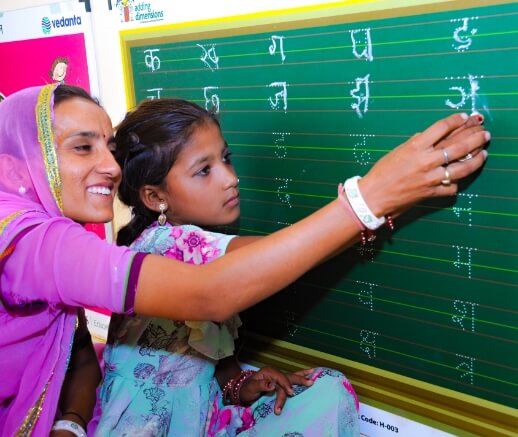 vedanta
adding
dimensions
क ख ग घ ङ
च छ ज झ ञ
ड ढ
द
न
म
व श
Code: H-003